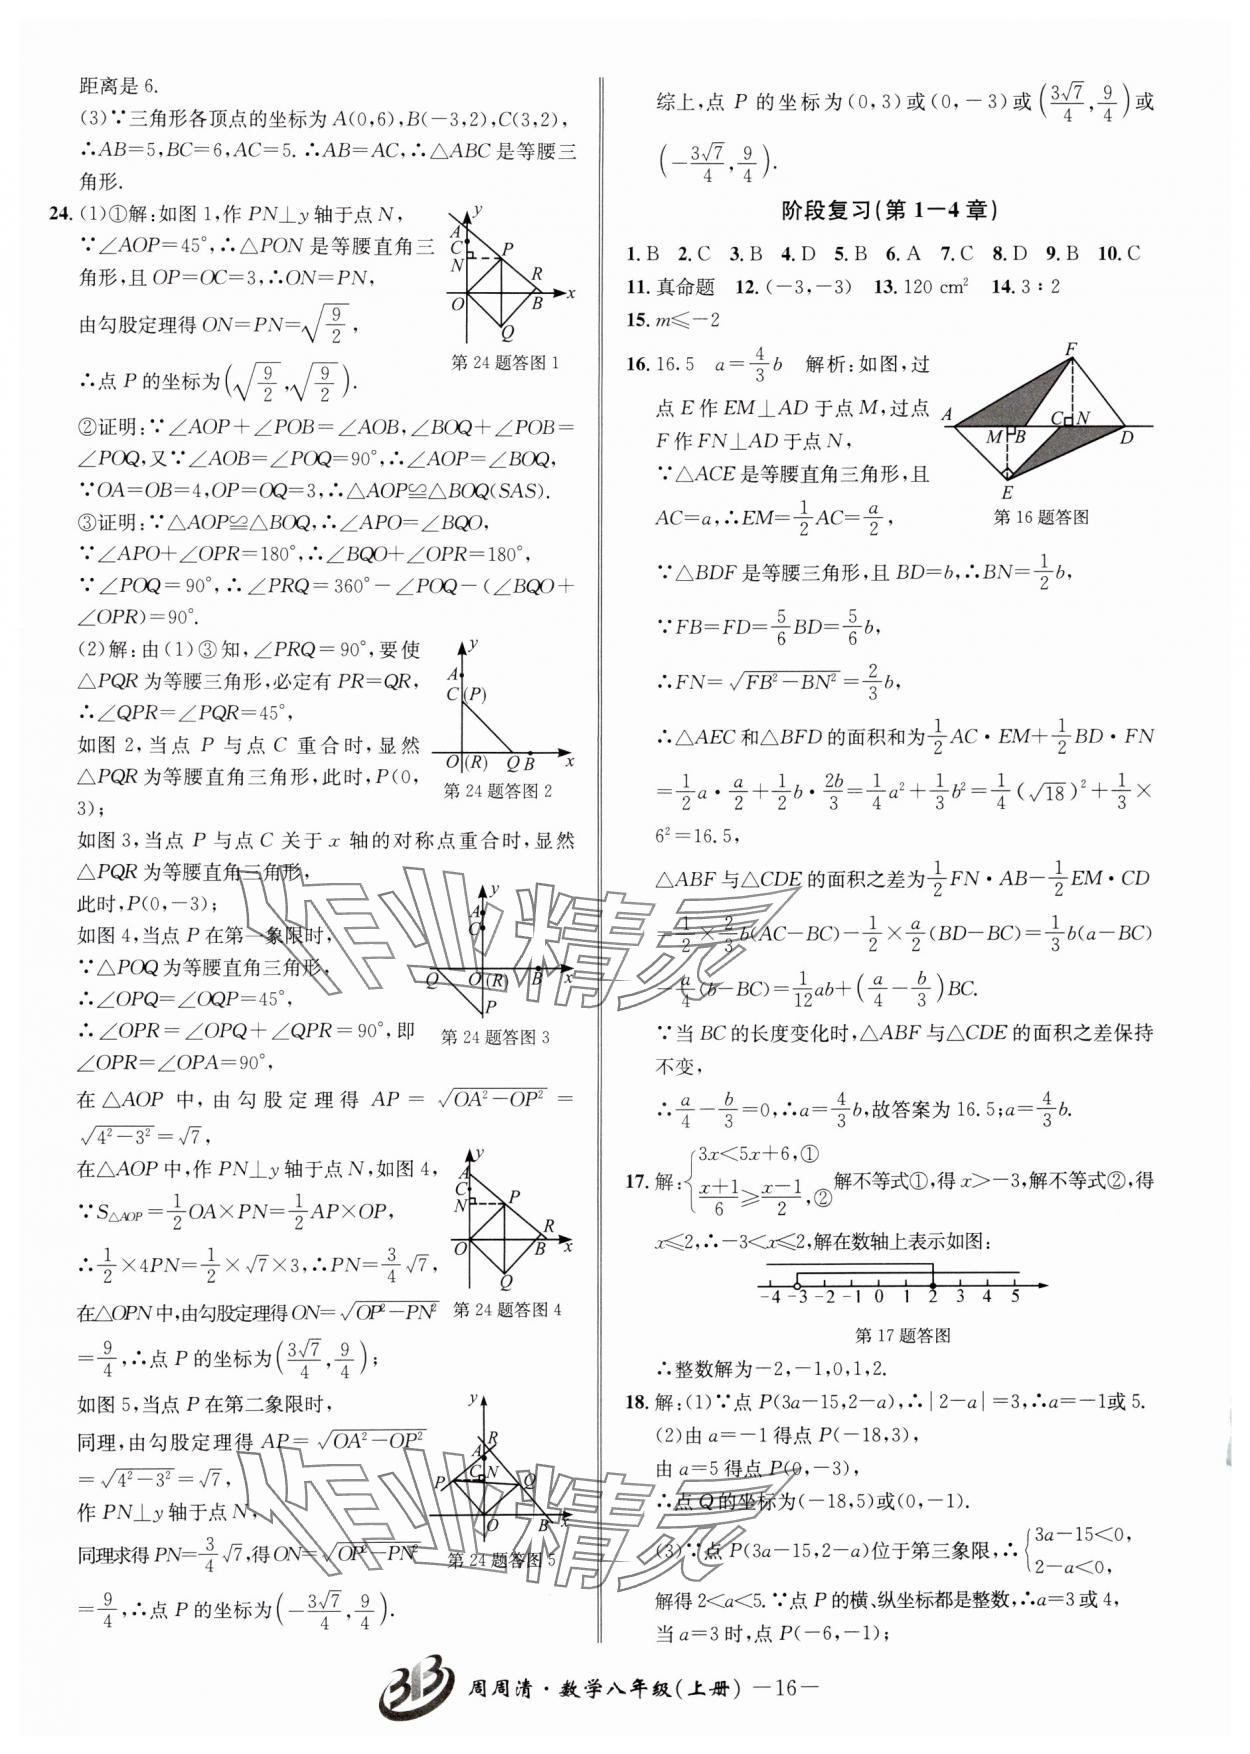 距离是 6.
(3)∵三角形各顶点的坐标为 A(0,6),B(-3,2),C(3,2),
∴AB=5,BC=6,AC=5. ∴AB=AC,∴△ABC 是等腰三
角形.
24. (1)①解:如图 1,作 PN⊥y 轴于点 N,
∵∠AOP=45°,∴△PON 是等腰直角三
角形,且 OP=OC=3,∴ON=PN,
由勾股定理得 ON=PN=√(9/2),
∴点 P 的坐标为(√(9/2),√(9/2)).
y
A
C
P
N
R
O
B
x
Q
第 24 题答图 1
②证明:∵∠AOP+∠POB=∠AOB,∠BOQ+∠POB=
∠POQ,又∵∠AOB=∠POQ=90°,∴∠AOP=∠BOQ,
∵OA=OB=4,OP=OQ=3,∴△AOP≌△BOQ(SAS).
③证明:∵△AOP≌△BOQ,∴∠APO=∠BQO,
∵∠APO+∠OPR=180°,∴∠BQO+∠OPR=180°,
∵∠POQ=90°,∴∠PRQ=360°-∠POQ-(∠BQO+
∠OPR)=90°.
(2)解:由(1)③知,∠PRQ=90°,要使
△PQR 为等腰三角形,必定有 PR=QR,
∴∠QPR=∠PQR=45°,
如图 2,当点 P 与点 C 重合时,显然
△PQR 为等腰直角三角形,此时,P(0,
3);
y
A
C (P)
O (R) Q B x
第 24 题答图 2
如图 3,当点 P 与点 C 关于 x 轴的对称点重合时,显然
△PQR 为等腰直角三角形,
此时,P(0,-3);
如图 4,当点 P 在第一象限时,
∵△POQ 为等腰直角三角形,
∴∠OPQ=∠OQP=45°,
∴∠OPR=∠OPQ+∠QPR=90°,即
∠OPR=∠OPA=90°,
y
A
C
Q O (R) B x
P
第 24 题答图 3
在△AOP 中,由勾股定理得 AP=√(OA²-OP²)=
√(4²-3²)=√7,
在△AOP 中,作 PN⊥y 轴于点 N,如图 4,
∵S△AOP=1/2 OA×PN=1/2 AP×OP,
∴1/2×4PN=1/2×√7×3,∴PN=3/4 √7,
在△OPN 中,由勾股定理得 ON=√(OP²-PN²)
=9/4,∴点 P 的坐标为(3√7/4,9/4);
y
A
C
N
P
R
O
B
x
Q
第 24 题答图 4
如图 5,当点 P 在第二象限时,
同理,由勾股定理得 AP=√(OA²-OP²)
=√(4²-3²)=√7,
作 PN⊥y 轴于点 N,
同理求得 PN=3/4 √7,得 ON=√(OP²-PN²)
=9/4,∴点 P 的坐标为(-3√7/4,9/4).
y
R
A
P
C N
Q
O
B
x
第 24 题答图 5
综上,点 P 的坐标为(0,3)或(0,-3)或(3√7/4,9/4)或
(-3√7/4,9/4).
阶段复习(第 1—4 章)
1. B 2. C 3. B 4. D 5. B 6. A 7. C 8. D 9. B 10. C
11. 真命题 12. (-3,-3) 13. 120 cm² 14. 3∶2
15. m≤-2
16. 16.5 a=4/3 b 解析:如图,过
点 E 作 EM⊥AD 于点 M,过点
F 作 FN⊥AD 于点 N,
∵△ACE 是等腰直角三角形,且
AC=a,∴EM=1/2 AC=a/2,
F
A
C N
M B
D
E
第 16 题答图
∵△BDF 是等腰三角形,且 BD=b,∴BN=1/2 b,
∵FB=FD=5/6 BD=5/6 b,
∴FN=√(FB²-BN²)=2/3 b,
∴△AEC 和△BFD 的面积和为1/2 AC·EM+1/2 BD·FN
=1/2 a·a/2+1/2 b·2b/3=1/4 a²+1/3 b²=1/4(√18)²+1/3×
6²=16.5,
△ABF 与△CDE 的面积之差为1/2 FN·AB-1/2 EM·CD
=1/2×2/3 b(AC-BC)-1/2×a/2(BD-BC)=1/3 b(a-BC)
-a/4(b-BC)=1/12 ab+(a/4-b/3)BC.
∵当 BC 的长度变化时,△ABF 与△CDE 的面积之差保持
不变,
∴a/4-b/3=0,∴a=4/3 b,故答案为 16.5;a=4/3 b.
17. 解:{3x<5x+6,① (x+1)/6≥(x-1)/2,② 解不等式①,得 x>-3,解不等式②,得
x≤2,∴-3<x≤2,解在数轴上表示如图:
-4 -3 -2 -1 0 1 2 3 4 5
第 17 题答图
∴整数解为-2,-1,0,1,2.
18. 解:(1)∵点 P(3a-15,2-a),∴|2-a|=3,∴a=-1或 5.
(2)由 a=-1 得点 P(-18,3),
由 a=5 得点 P(0,-3),
∴点 Q 的坐标为(-18,5)或(0,-1).
(3)∵点 P(3a-15,2-a)位于第三象限,∴{3a-15<0, 2-a<0,
解得 2<a<5. ∵点 P 的横、纵坐标都是整数,∴a=3 或 4,
当 a=3 时,点 P(-6,-1);
作业精灵
作业精灵
周周清·数学八年级(上册) —16—